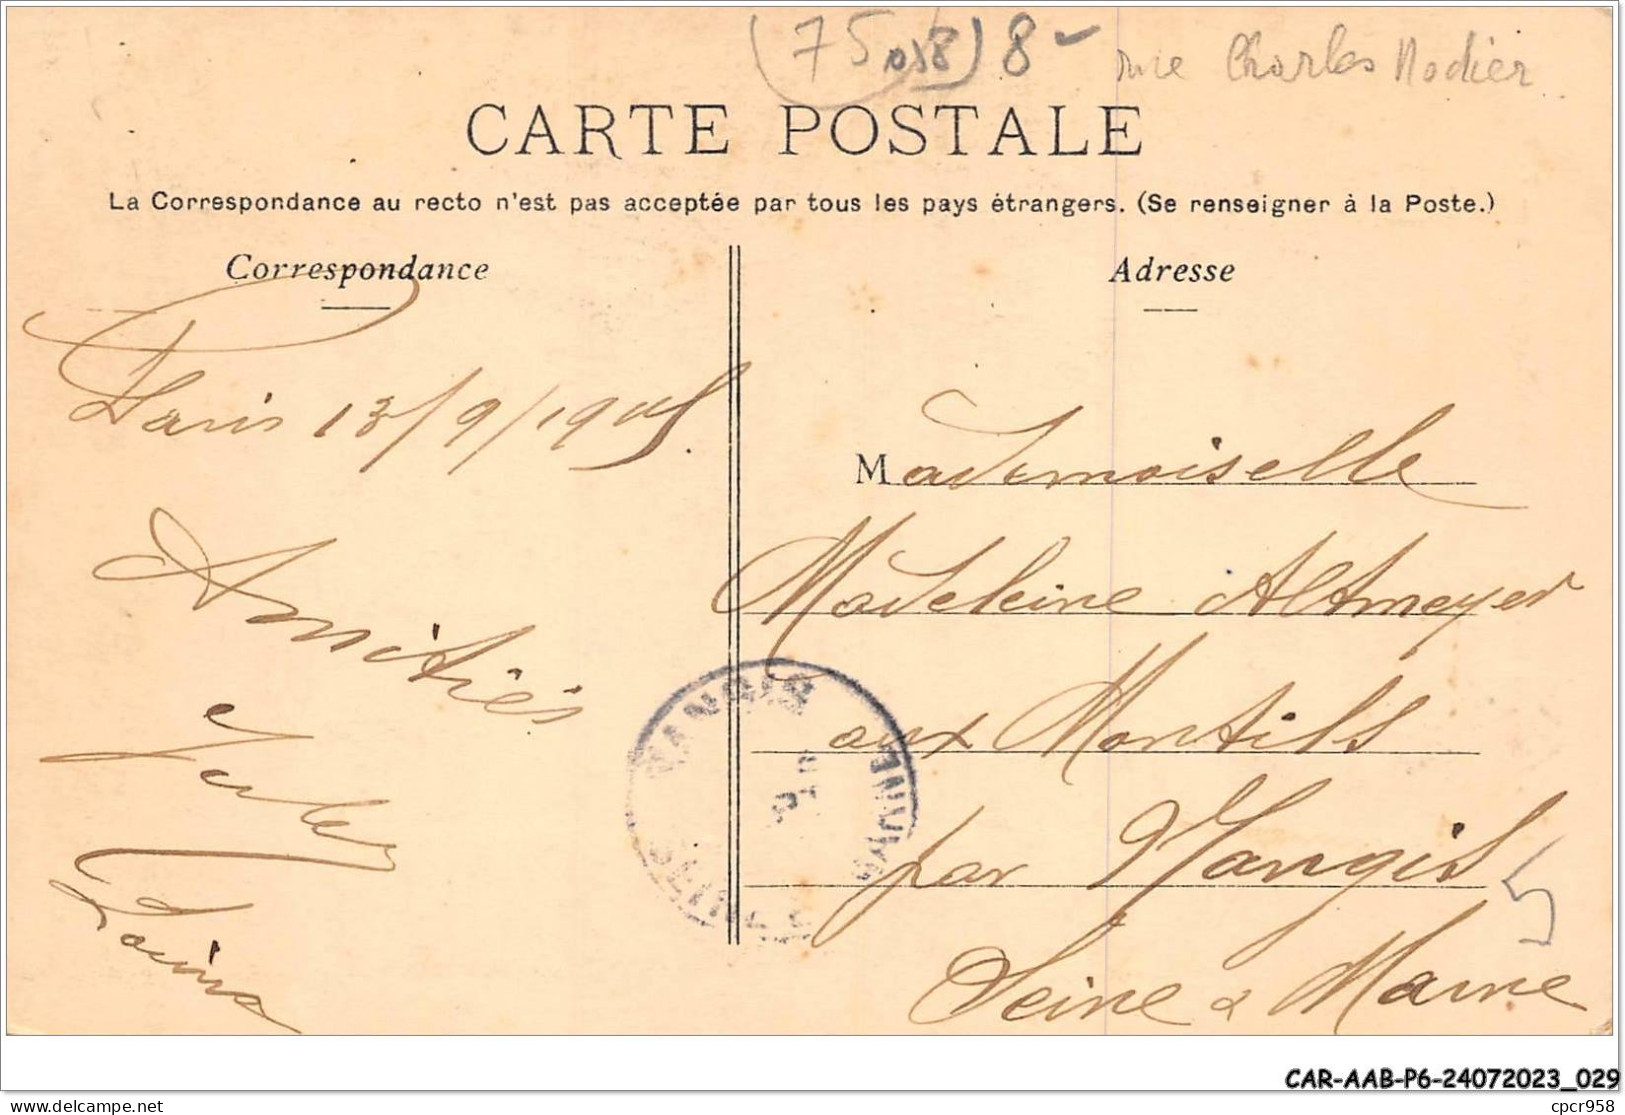 (75018) 8- rue Charles Nodier
CARTE POSTALE
La Correspondance au recto n'est pas acceptée par tous les pays étrangers. (Se renseigner à la Poste.)
Correspondance
Adresse
Paris 13/9/1905.
Amitiés
Jules
Mademoiselle
Madeleine Altmeyer
aux Montils
par Nangis
Seine & Marne
5
NANGIS
SEINE & MARNE
CAR-AAB-P6-24072023_029
delcampe.net
cpcr958